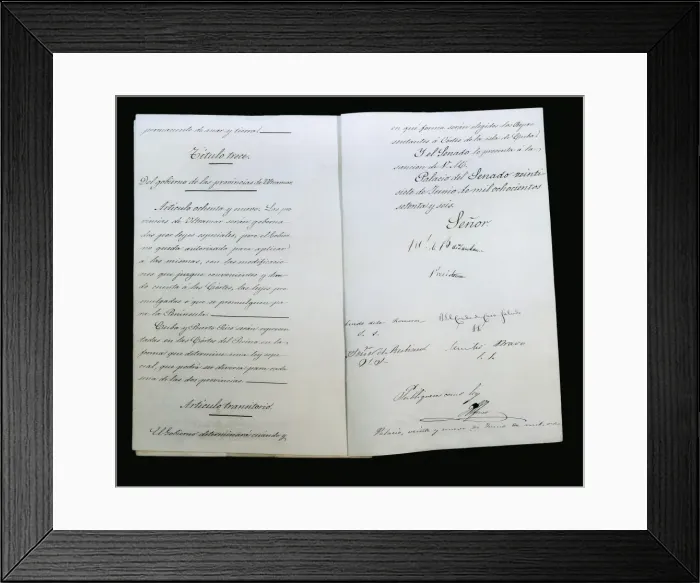 permanente de mar y tierra.
Título trece.
Del gobierno de las provincias de Ultramar.
Artículo ochenta y nueve. Las pro-
vincias de Ultramar serán goberna-
das por leyes especiales; pero el Gobier-
no queda autorizado para aplicar
á las mismas, con las modificacio-
nes que juzgue convenientes y dan-
do cuenta á las Córtes, las leyes pro-
mulgadas ó que se promulguen pa-
ra la Península.
Cuba y Puerto Rico serán represen-
tadas en las Córtes del Reino en la
forma que determine una ley espe-
cial, que podrá ser diversa para cada
una de las dos provincias.
Artículo transitorio.
El Gobierno determinará cuándo y
en qué forma serán elegidos los Repre-
sentantes á Córtes de la isla de Cuba.
Y el Senado lo presenta á la
sancion de V. M.
Palacio del Senado veinte
dos de Junio de mil ochocientos
setenta y seis.
Señor.
Presidente
Publíquese como ley
Alfonso
Palacio, treinta y de Junio de mil ocho